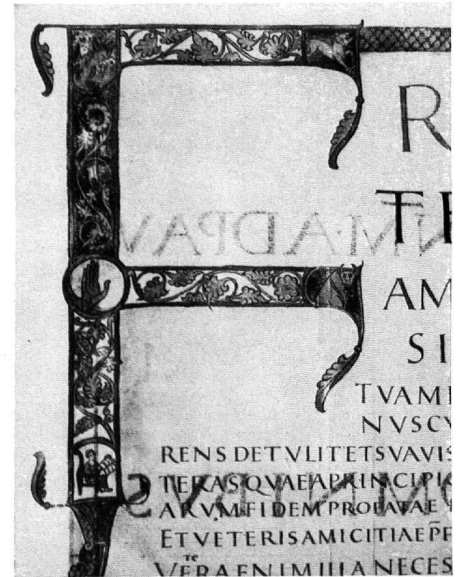 FR
TE
AM
SI
TVAMI
NVSCV
RENS DETVLITETSVAVIS
TERASQVAEAPRINCIPI
ARVMFIDEMPROBATAE
ETVETERISAMICITIAE
VERAENIMILLANECES